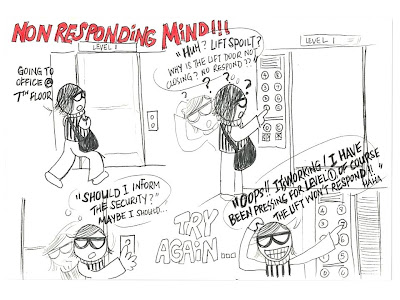 NON RESPONDING MIND!!!
LEVEL 1
GOING TO
OFFICE @
7TH FLOOR
"HUH? LIFT SPOILT?
WHY IS THE LIFT DOOR NOT
CLOSING? NO RESPOND??"
? ? ? ?
LEVEL 1
"SHOULD I INFORM
THE SECURITY?"
MAYBE I SHOULD...
TRY
AGAIN...
"OOPS!! IT'S WORKING! I HAVE
BEEN PRESSING FOR LEVEL 1 OF COURSE
THE LIFT WON'T RESPOND!!"
HAHA